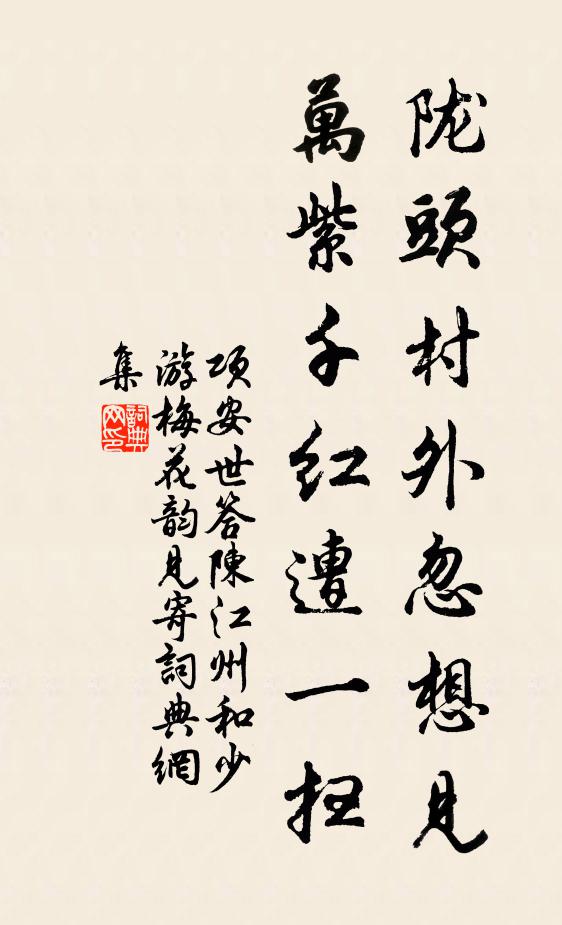 陇頭村外忽想見
萬紫千红遭一扫
项安世答陳江州和少
游梅花韵見寄詞典網
集
詞典网印